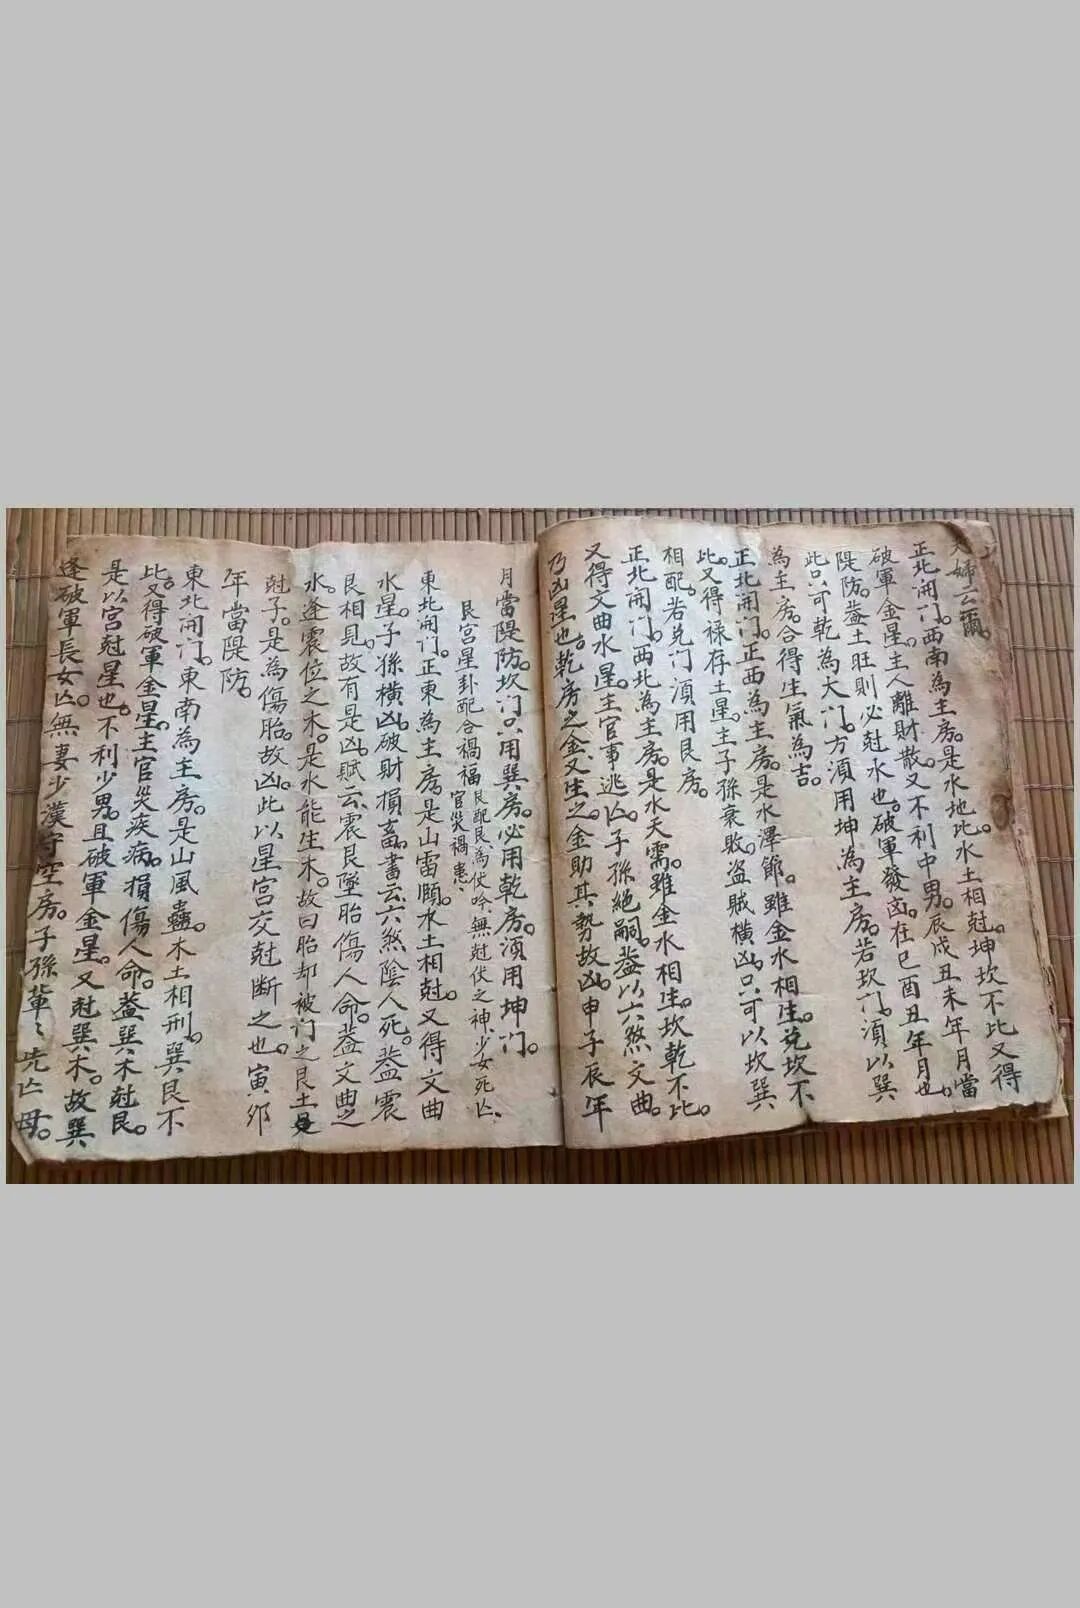 夫婦云爾。
正北開门。西南為主房。是水地比。水土相尅。坤坎不比。又得
破軍金星。主人離財散。又不利中男。辰戌丑未年月當
隄防。蓋土旺則必尅水也。破軍發凶。在巳酉丑年月也。
此只可乾為大门。方湏用坤為主房。若坎门。湏以巽
為主房。合得生氣為吉。
正北開门。正西為主房。是水澤節。雖金水相生。兌坎不
比。又得禄存土星。主子孫衰敗。盗賊橫凶。只可以坎巽
相配。若兌门湏用艮房。
正北開门。西北為主房。是水天需。雖金水相生。坎乾不比
又得文曲水星。主官事逃凶。子孫絕嗣。蓋以六煞文曲。
乃凶星也。乾房之金。又生之。金助其勢故凶。申子辰年
月當隄防。坎门只用巽房。必用乾房。湏用坤门。
艮宫星卦配合禍福 艮配艮。為伏吟。無尅伏之神。少女死亡、官災禍患。
東北開门。正東為主房。是山雷頤。水土相尅。又得文曲
水星。子孫橫凶。破財損畜。書云。六煞陰人死。蓋震
艮相見。故有是凶。賦云。震艮墜胎傷人命。蓋文曲之
水。逢震位之木。是水能生木。故曰胎却被门之艮土是
尅子。是為傷胎。故凶。此以星宫交尅断之也。寅卯
年當隄防。
東北開门。東南為主房。是山風蠱。木土相刑。巽艮不
比。又得破軍金星。主官災疾病。損傷人命。蓋巽木尅艮。
是以宫尅星也。不利少男。且破軍金星。又尅巽木。故巽
逢破軍長女亡。無妻少漢守空房。子孫輩〻先亡母。